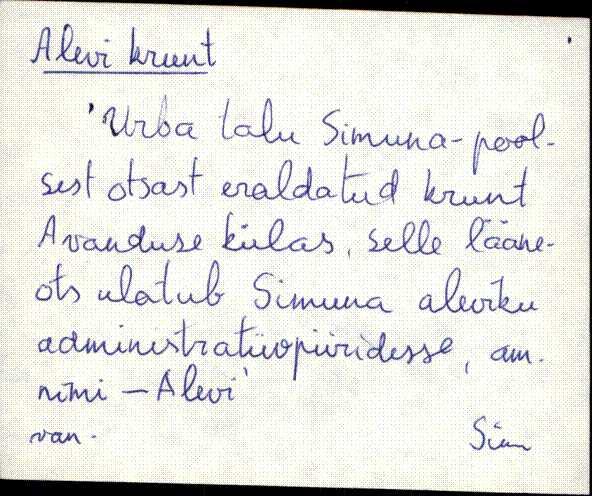 Alevi krunt
'Urba talu Simuna-pool-
sest otsast eraldatud krunt
Avanduse külas, selle lääne-
ots ulatub Simuna aleviku
administratiivpiiridesse, am.
nimi – Alevi'
van. Sim